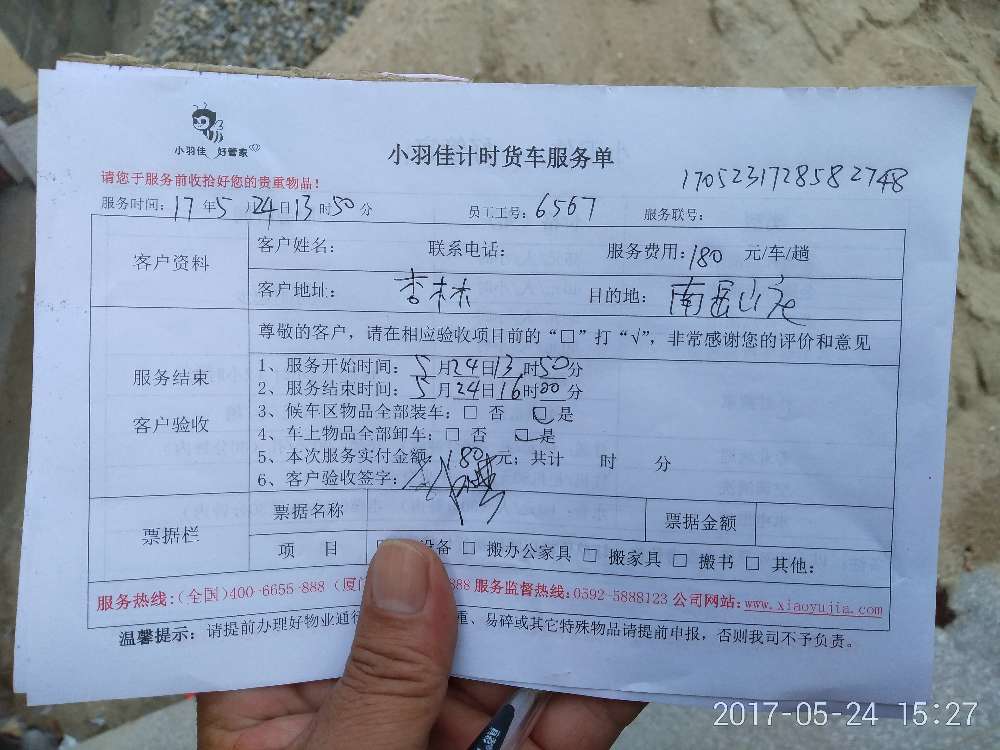 小羽佳 好管家
小羽佳计时货车服务单
170523172858 2748
请您于服务前收拾好您的贵重物品！
服务时间：17年5月24日13时50分 员工工号：6567 服务联号：
客户资料
客户姓名： 联系电话： 服务费用：180 元/车/趟
客户地址： 杏林 目的地： 南山
尊敬的客户，请在相应验收项目前的“□”打“√”，非常感谢您的评价和意见
服务结束
客户验收
1、服务开始时间：5月24日13时50分
2、服务结束时间：5月24日16时00分
3、候车区物品全部装车：□ 否 □是
4、车上物品全部卸车：□ 否 □是
5、本次服务实付金额：180元；共计 时 分
6、客户验收签字：
票据栏
票据名称 票据金额
项 目 设备 □ 搬办公家具 □ 搬家具 □ 搬书 □ 其他：
服务热线：（全国）400-6655-888（厦 888 服务监督热线：0592-5888123 公司网站：www.xiaoyujia.com
温馨提示：请提前办理好物业通行 重、易碎或其它特殊物品请提前申报，否则我司不予负责。
2017-05-24 15:27